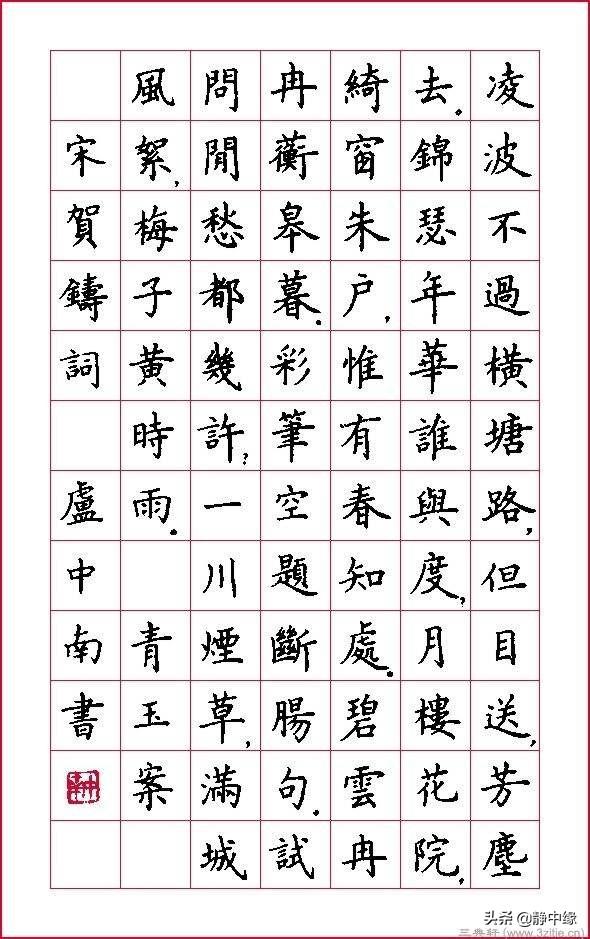 凌波不過橫塘路,但目送,芳塵
去。錦瑟年華誰與度,月樓花院,
綺窗朱户,惟有春知處。碧雲冉
冉蘅皋暮。彩筆空題斷腸句。試
問閒愁都幾許?一川煙草,滿城
風絮,梅子黃時雨。 青玉案
宋賀鑄詞 盧中南書
头条 @静中缘
三典軒(www.3zitie.cn)